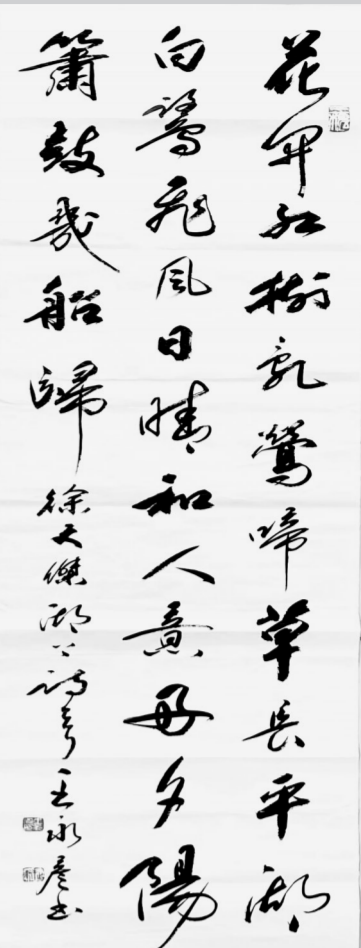 花開紅樹亂鶯啼草長平湖
白鷺飛風日晴和人意好夕陽
簫鼓幾船歸徐天傑湖上詩一首王永彥书